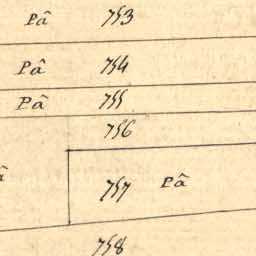 Pâ 753
Pâ 754
Pâ 755
756
757 Pâ
758